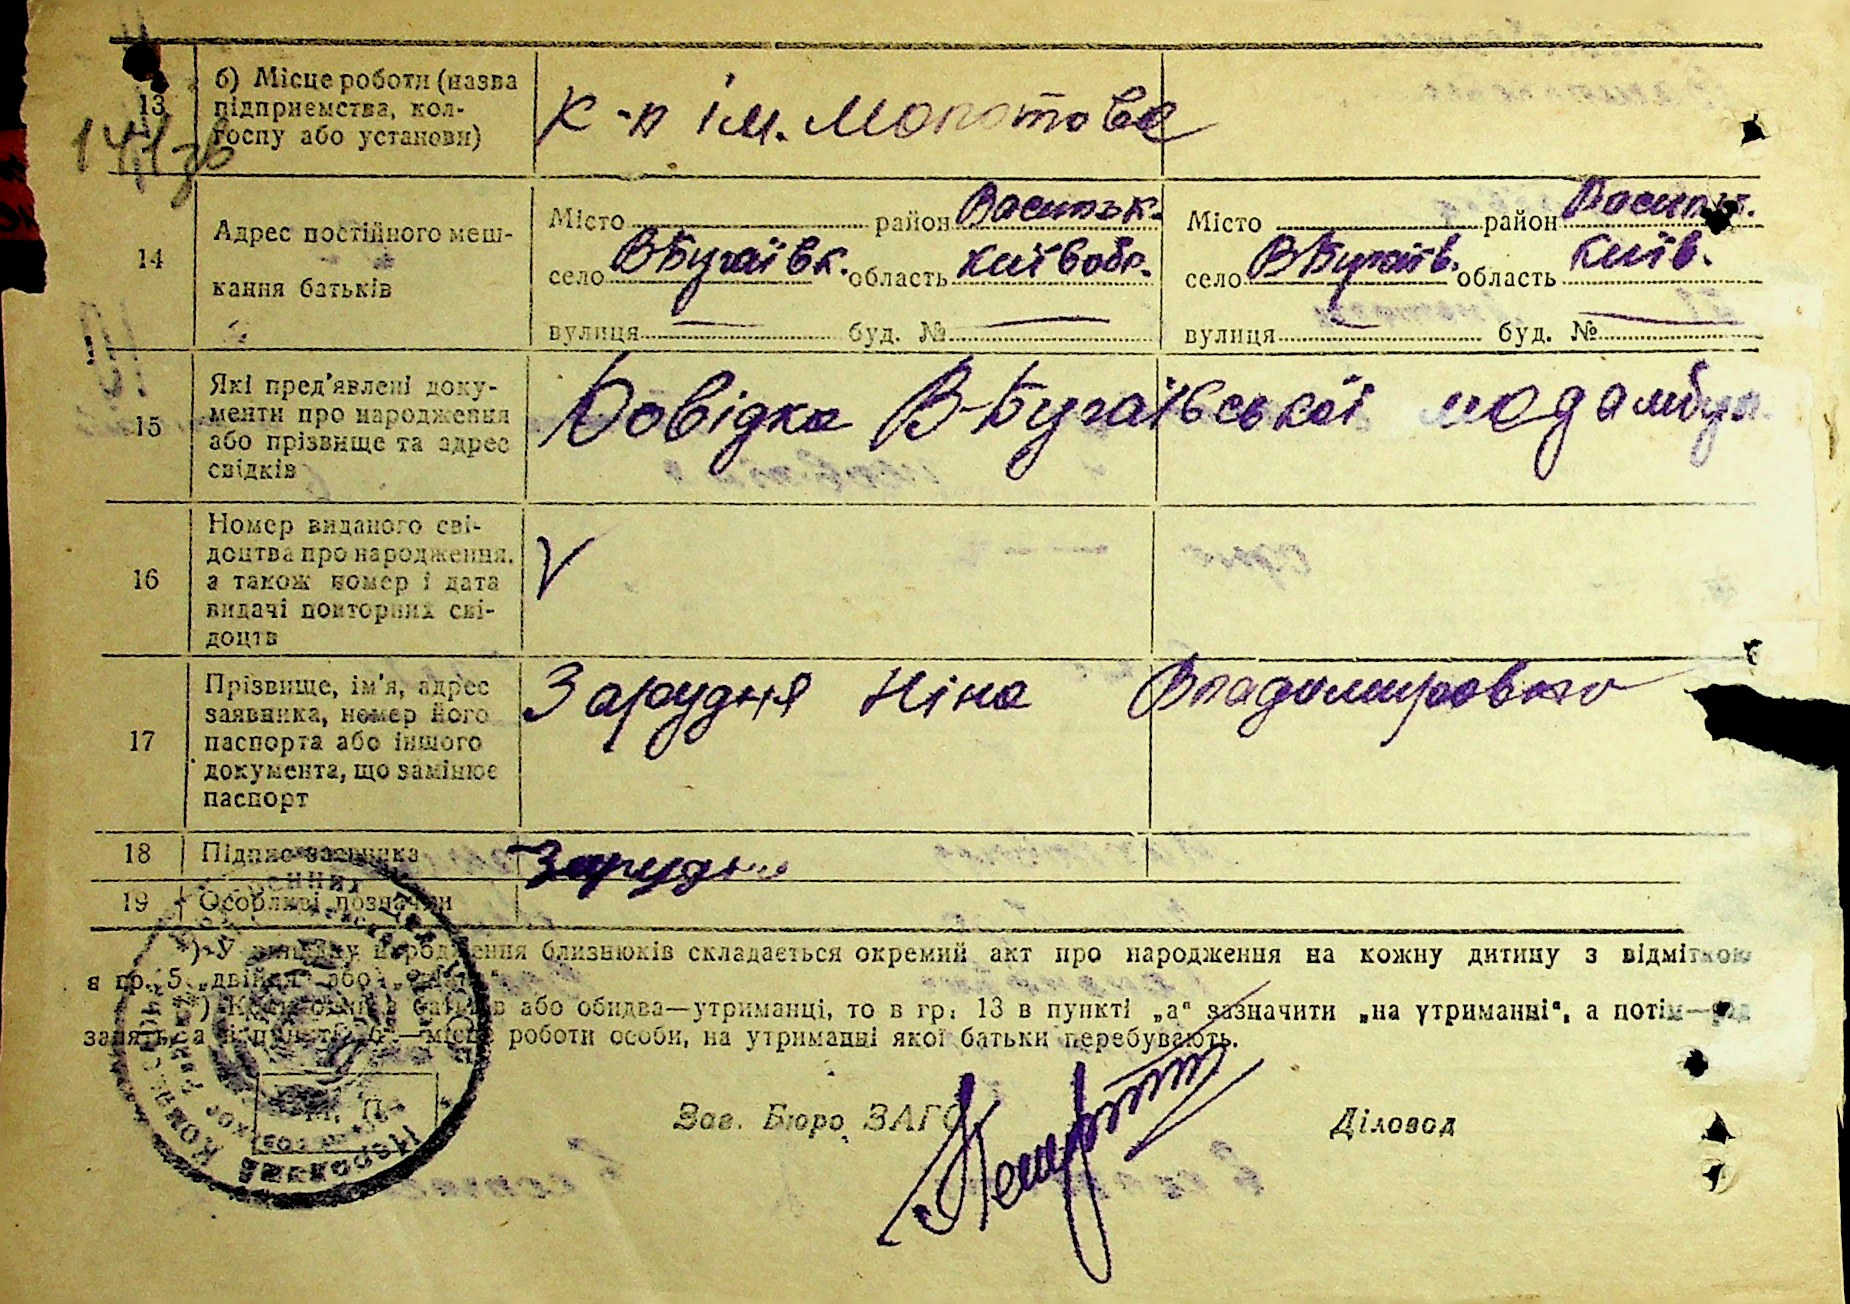 13
б) Місце роботи (назва
підприємства, кол-
госпу або установи)
к-п ім. Молотова
14
Адрес постійного меш-
кання батьків
Місто район Васильк.
село ВБугаївк. область київ обл.
вулиця — буд. № —
Місто район Васильк.
село ВБугаїв. область Київ.
вулиця — буд. № —
15
Які пред'явлені доку-
менти про народження
або прізвище та адрес
свідків
Довідка В-Бугаївської медамбул.
16
Номер виданого сві-
доцтва про народження,
а також номер і дата
видачі повторних сві-
доцтв
V
17
Прізвище, ім'я, адрес
заявника, номер його
паспорта або іншого
документа, що замінює
паспорт
Зарудня Ніна Владимировна
18
Підпис заявника
Зарудня
19
Особливі позначки
*) У випадку народження близнюків складається окремий акт про народження на кожну дитину з відміткою
в гр. 5 „двійня" або
**) Коли один з батьків або обидва—утриманці, то в гр. 13 в пункті „а" зазначити „на утриманні", а потім—рід
занять, а в пункті „б"—місце роботи особи, на утриманні якої батьки перебувають.
М. П.
Зав. Бюро ЗАГС
Діловод